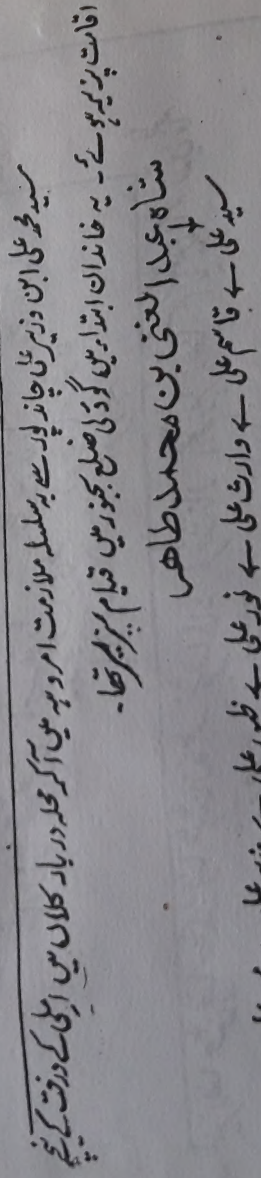 سید محمد علی ابن وزیر علی چاند پور سے بہ سلسلہ ملازمت امروہہ میں آکر محلہ دربار کلاں میں املی کے درخت کے نیچے
اقامت پزیر ہوئے۔ یہ خاندان ابتداء میں گودلی ضلع بجنور میں قیام پزیر تھا۔
شاہ عبد الغنی بن محمد طاهر
سید علی ← قاسم علی ← وارث علی ← نور علی ←